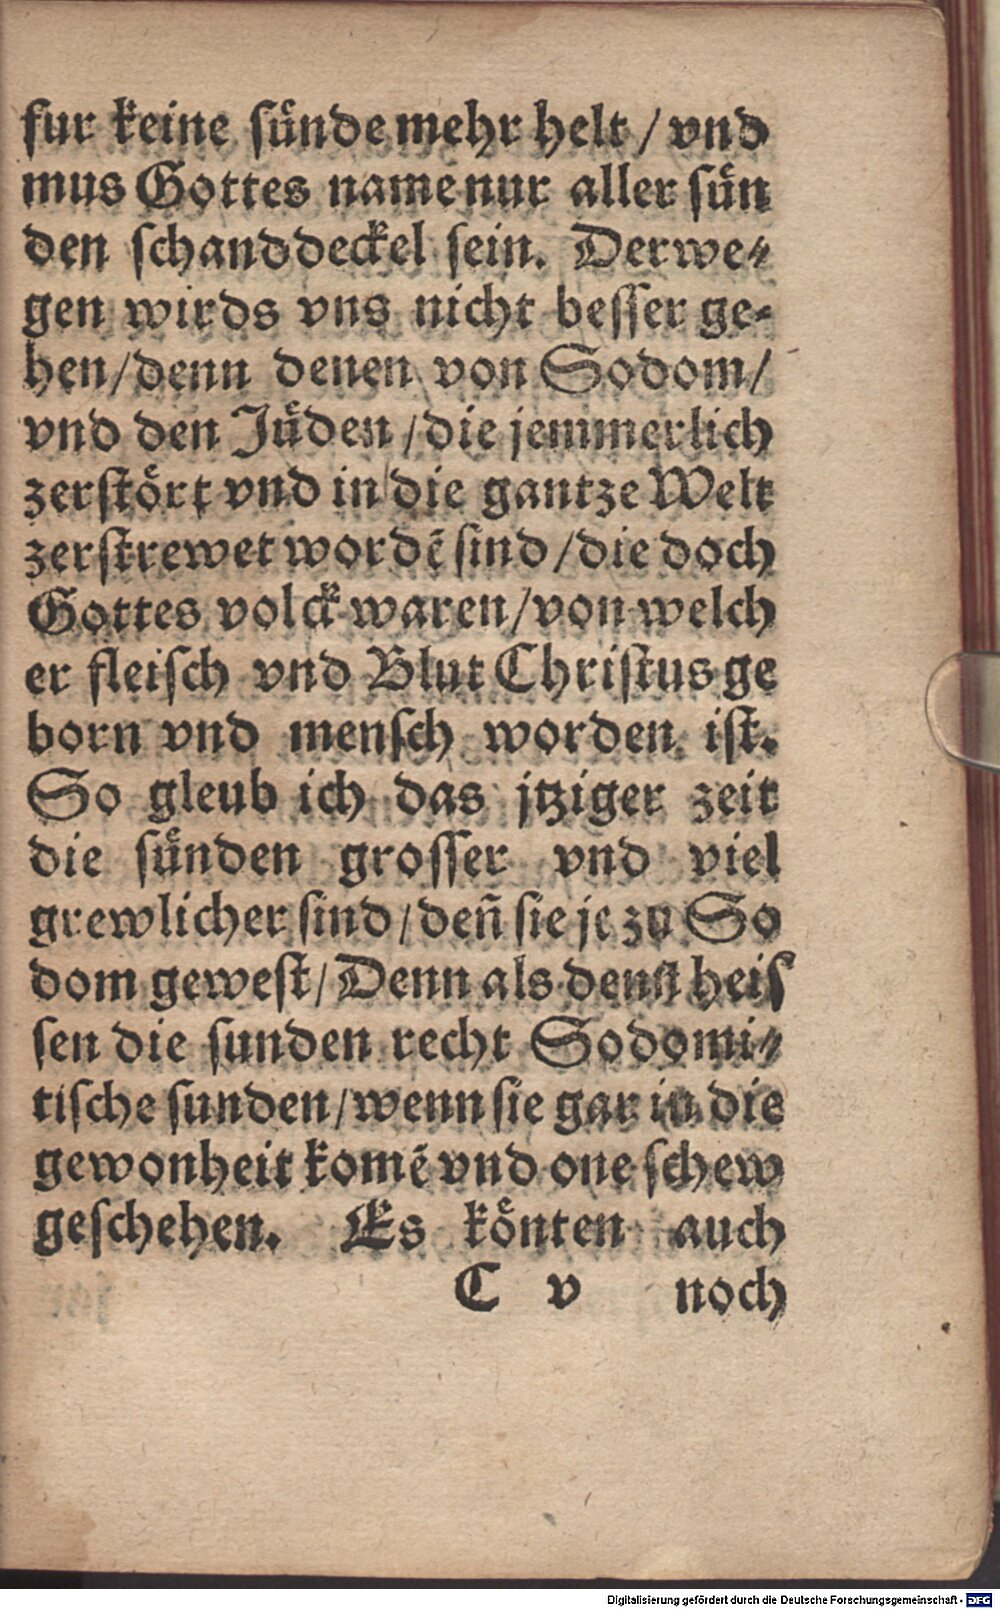 fur keine sünde mehr helt / vnd
mus Gottes name nur aller sün
den schanddeckel sein. Derwe-
gen wirds vns nicht besser ge-
hen / denn denen von Sodom /
vnd den Jüden / die jemmerlich
zerstört vnd in die gantze Welt
zerstrewet wordē sind / die doch
Gottes volck waren / von welch
er fleisch vnd Blut Christus ge
born vnd mensch worden ist.
So gleub ich das jtziger zeit
die sünden grosser vnd viel
grewlicher sind / deñ sie je zu So
dom gewest / Denn als denst heis
sen die sunden recht Sodomi-
tische sunden / wenn sie gar in die
gewonheit komē vnd one schew
geschehen. Es könten auch
C v noch
Digitalisierung gefördert durch die Deutsche Forschungsgemeinschaft - DFG